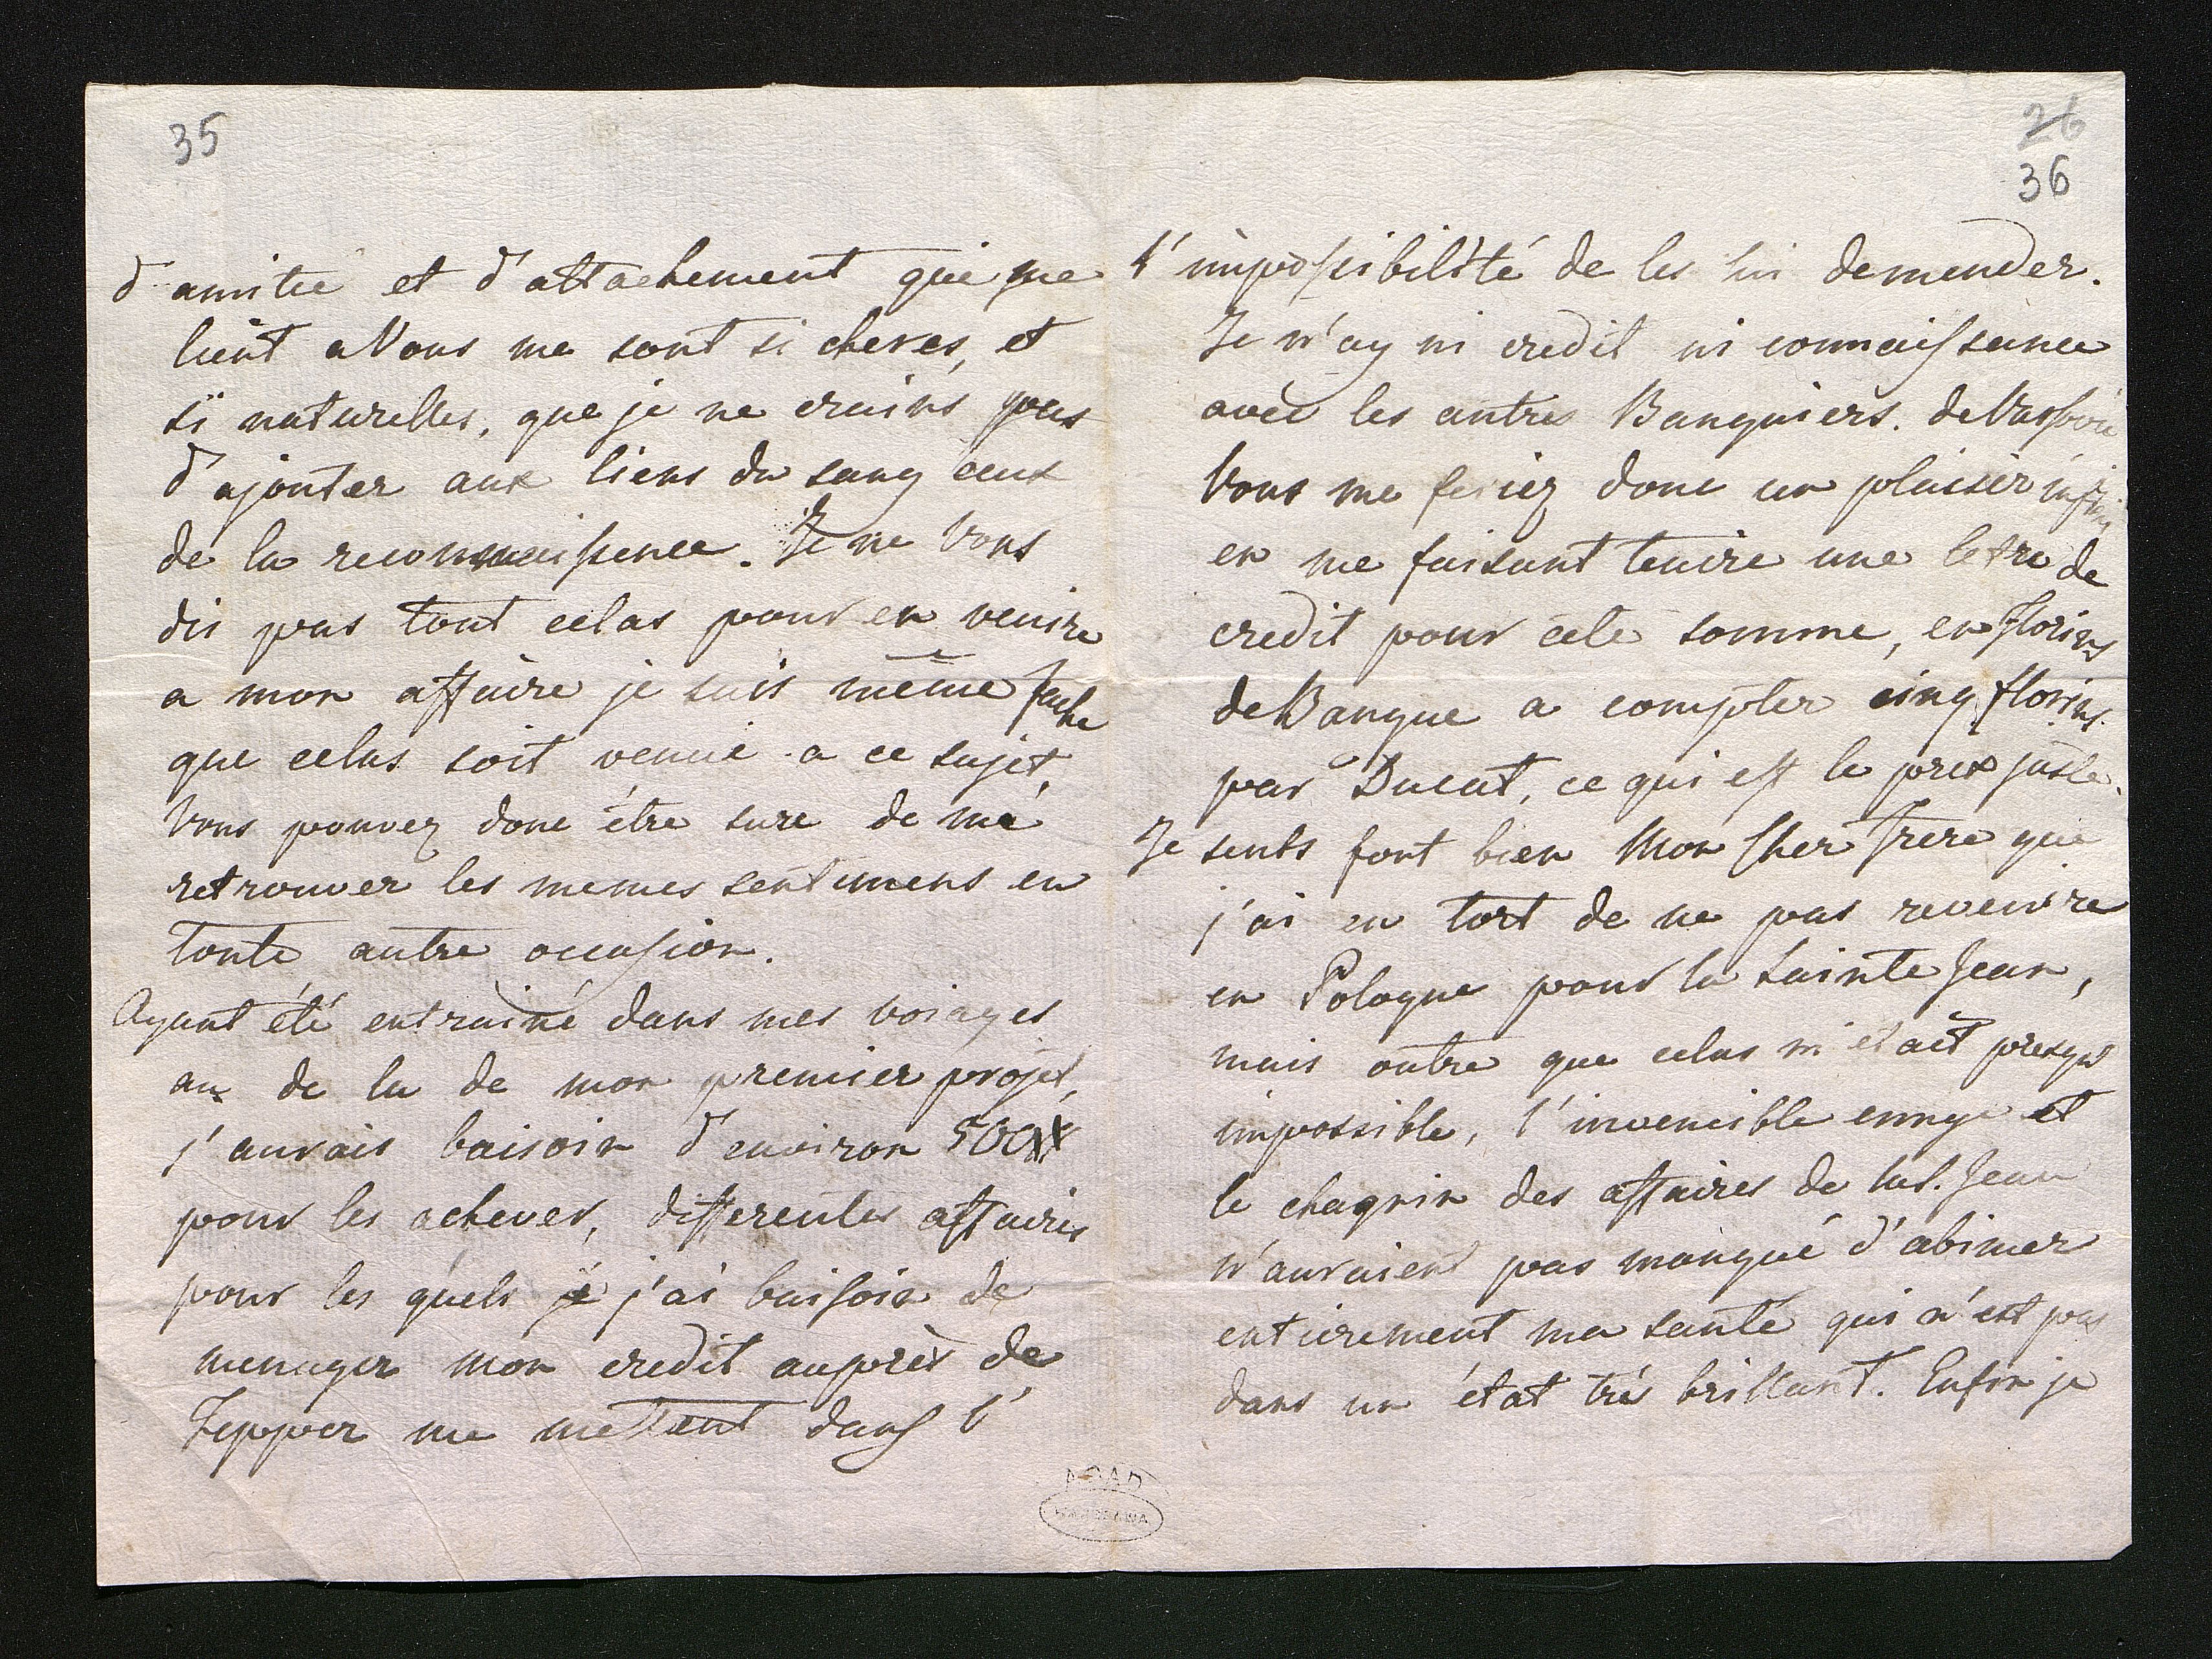 35
d'amitie et d'attachement qui me
lient a Vous me sont si cheres, et
si naturelles, que je ne crains pas
d'ajouter aux liens du sang ceux
de la reconnaissance. Je ne Vous
dis pas tout celas pour en venire
a mon affaire je suis même fache
que celas soit venue a ce sujet,
Vous pouvez donc être sure de me
retrouver les memes sentimens en
toute autre occasion.
Ayant été entrainé dans mes voiages
au de la de mon premier projet,
j'aurais baisoin d'environ 500#
pour les achever, differentes affaires
pour les quels je j'ai baisoin de
menager mon credit auprès de
Tepper me mettent dans l'
26
36
l'impossibilité de les lui demender.
Je n'ay ni credit ni connaissance
avec les autres Banquiers. de
Vous me feriez donc un plaisir infini
en me faisant tenire une letre de
credit pour cete somme, en florins
de Banque a compter cinq florins
par Ducat, ce qui est le prix juste.
Je sents fort bien Mon Cher Frere que
j'ai eu tort de ne pas revenire
en Pologne pour la Sainte Jean,
mais outre que celas m'était presqu
impossible, l'invencible ennye et
le chagrin des affaires de la S. Jean
n'auraient pas manqué d'abimer
entierement ma santé qui n'est pas
dans un état très brillant. Enfin je
AGAD
WARSZAWA